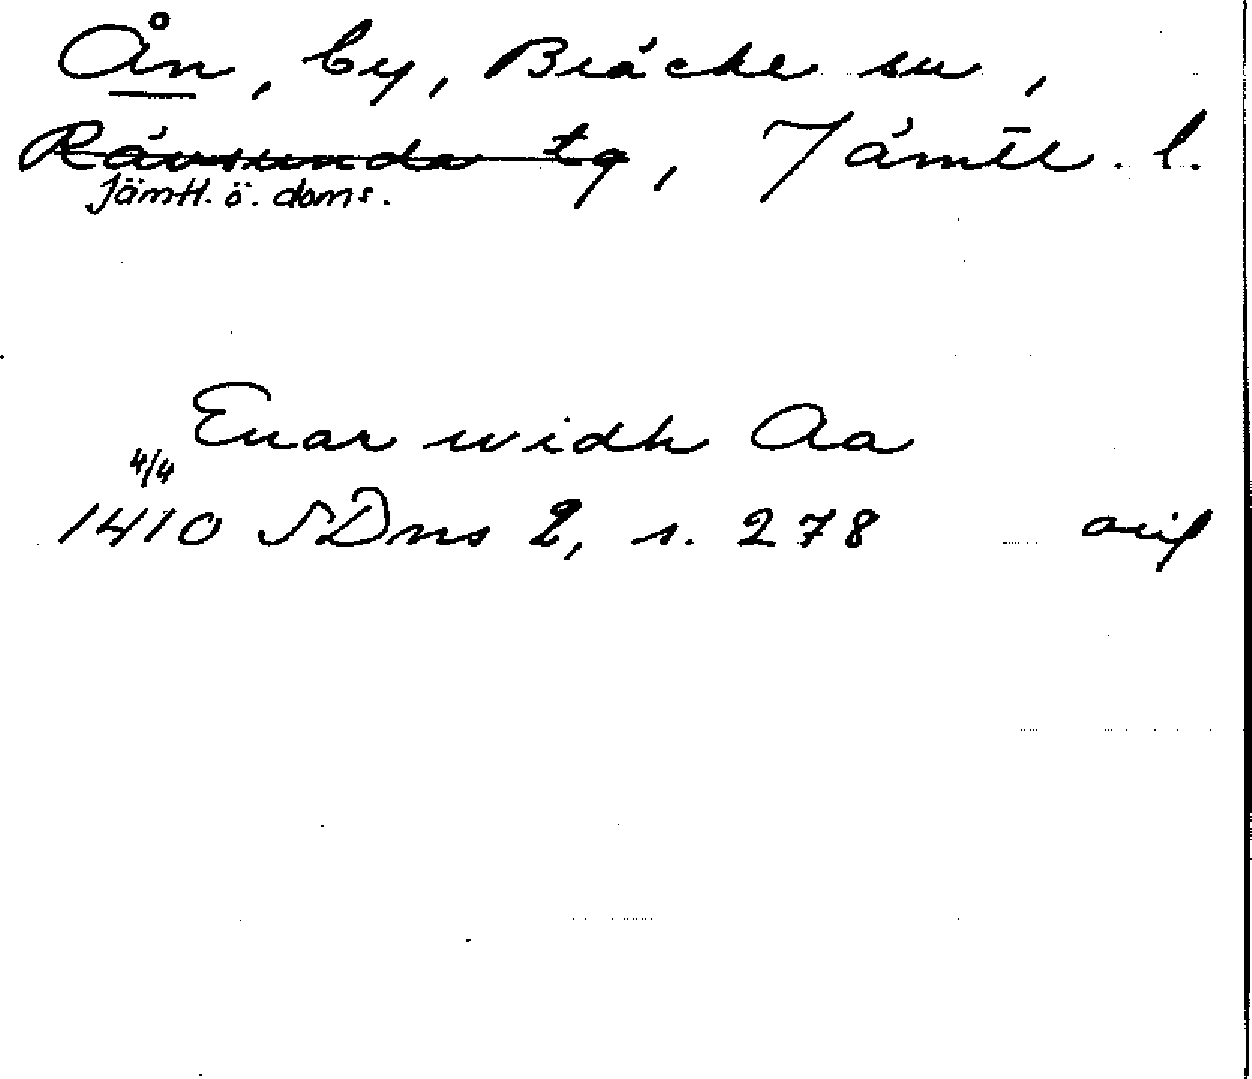 Ån, by, Bräcke sn,
Rävsunda tg, Jämtl. l.
Jämtl. ö. doms.
Euar widh Aa
4/4
1410 SDns 2, s. 278 orig